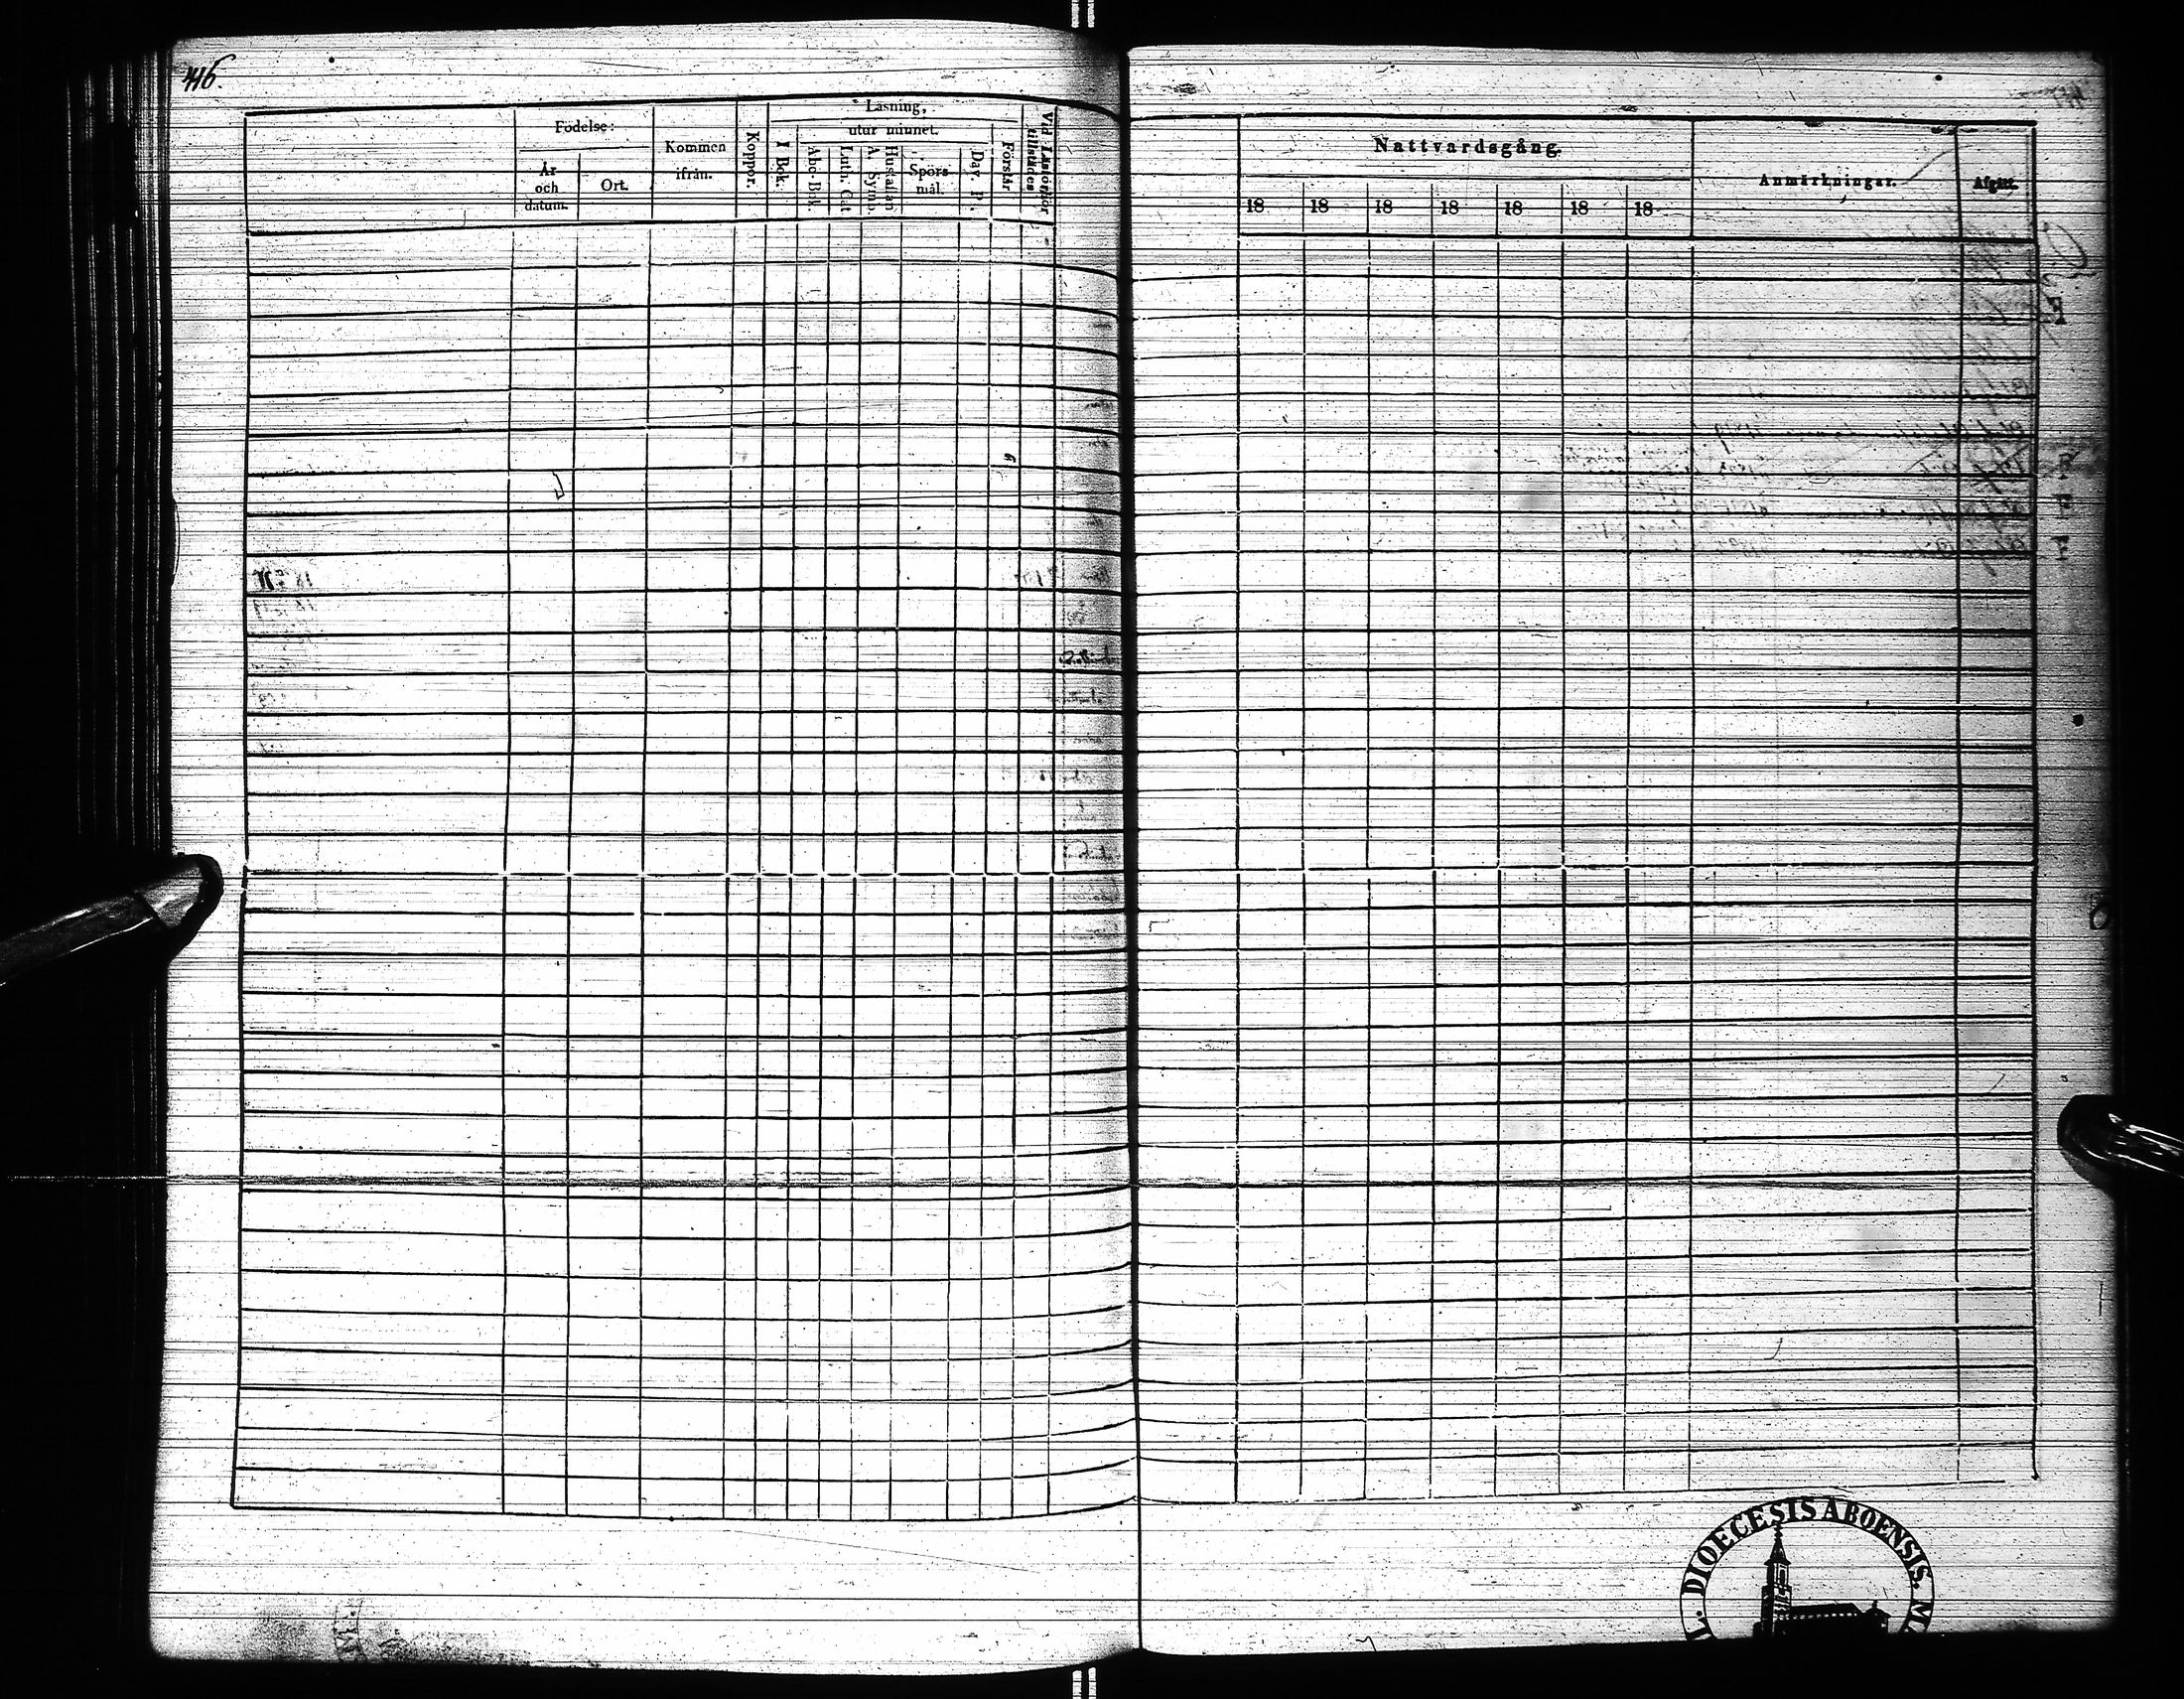 416.
Födelse:
År och datum.
Ort.
Kommen ifrån.
Koppor.
Läsning,
I Bok.
utur minnet.
Abc-Bok.
Luth. Cat
A. Symb.
Hustaflan
Spörs mål.
Dav. P.
Förstår
Vid Läsförhör tillstädes
Nattvardsgång.
18 18 18 18 18 18 18
Anmärkningar.
Afgått.
DIOECESIS ABOENSIS. M.